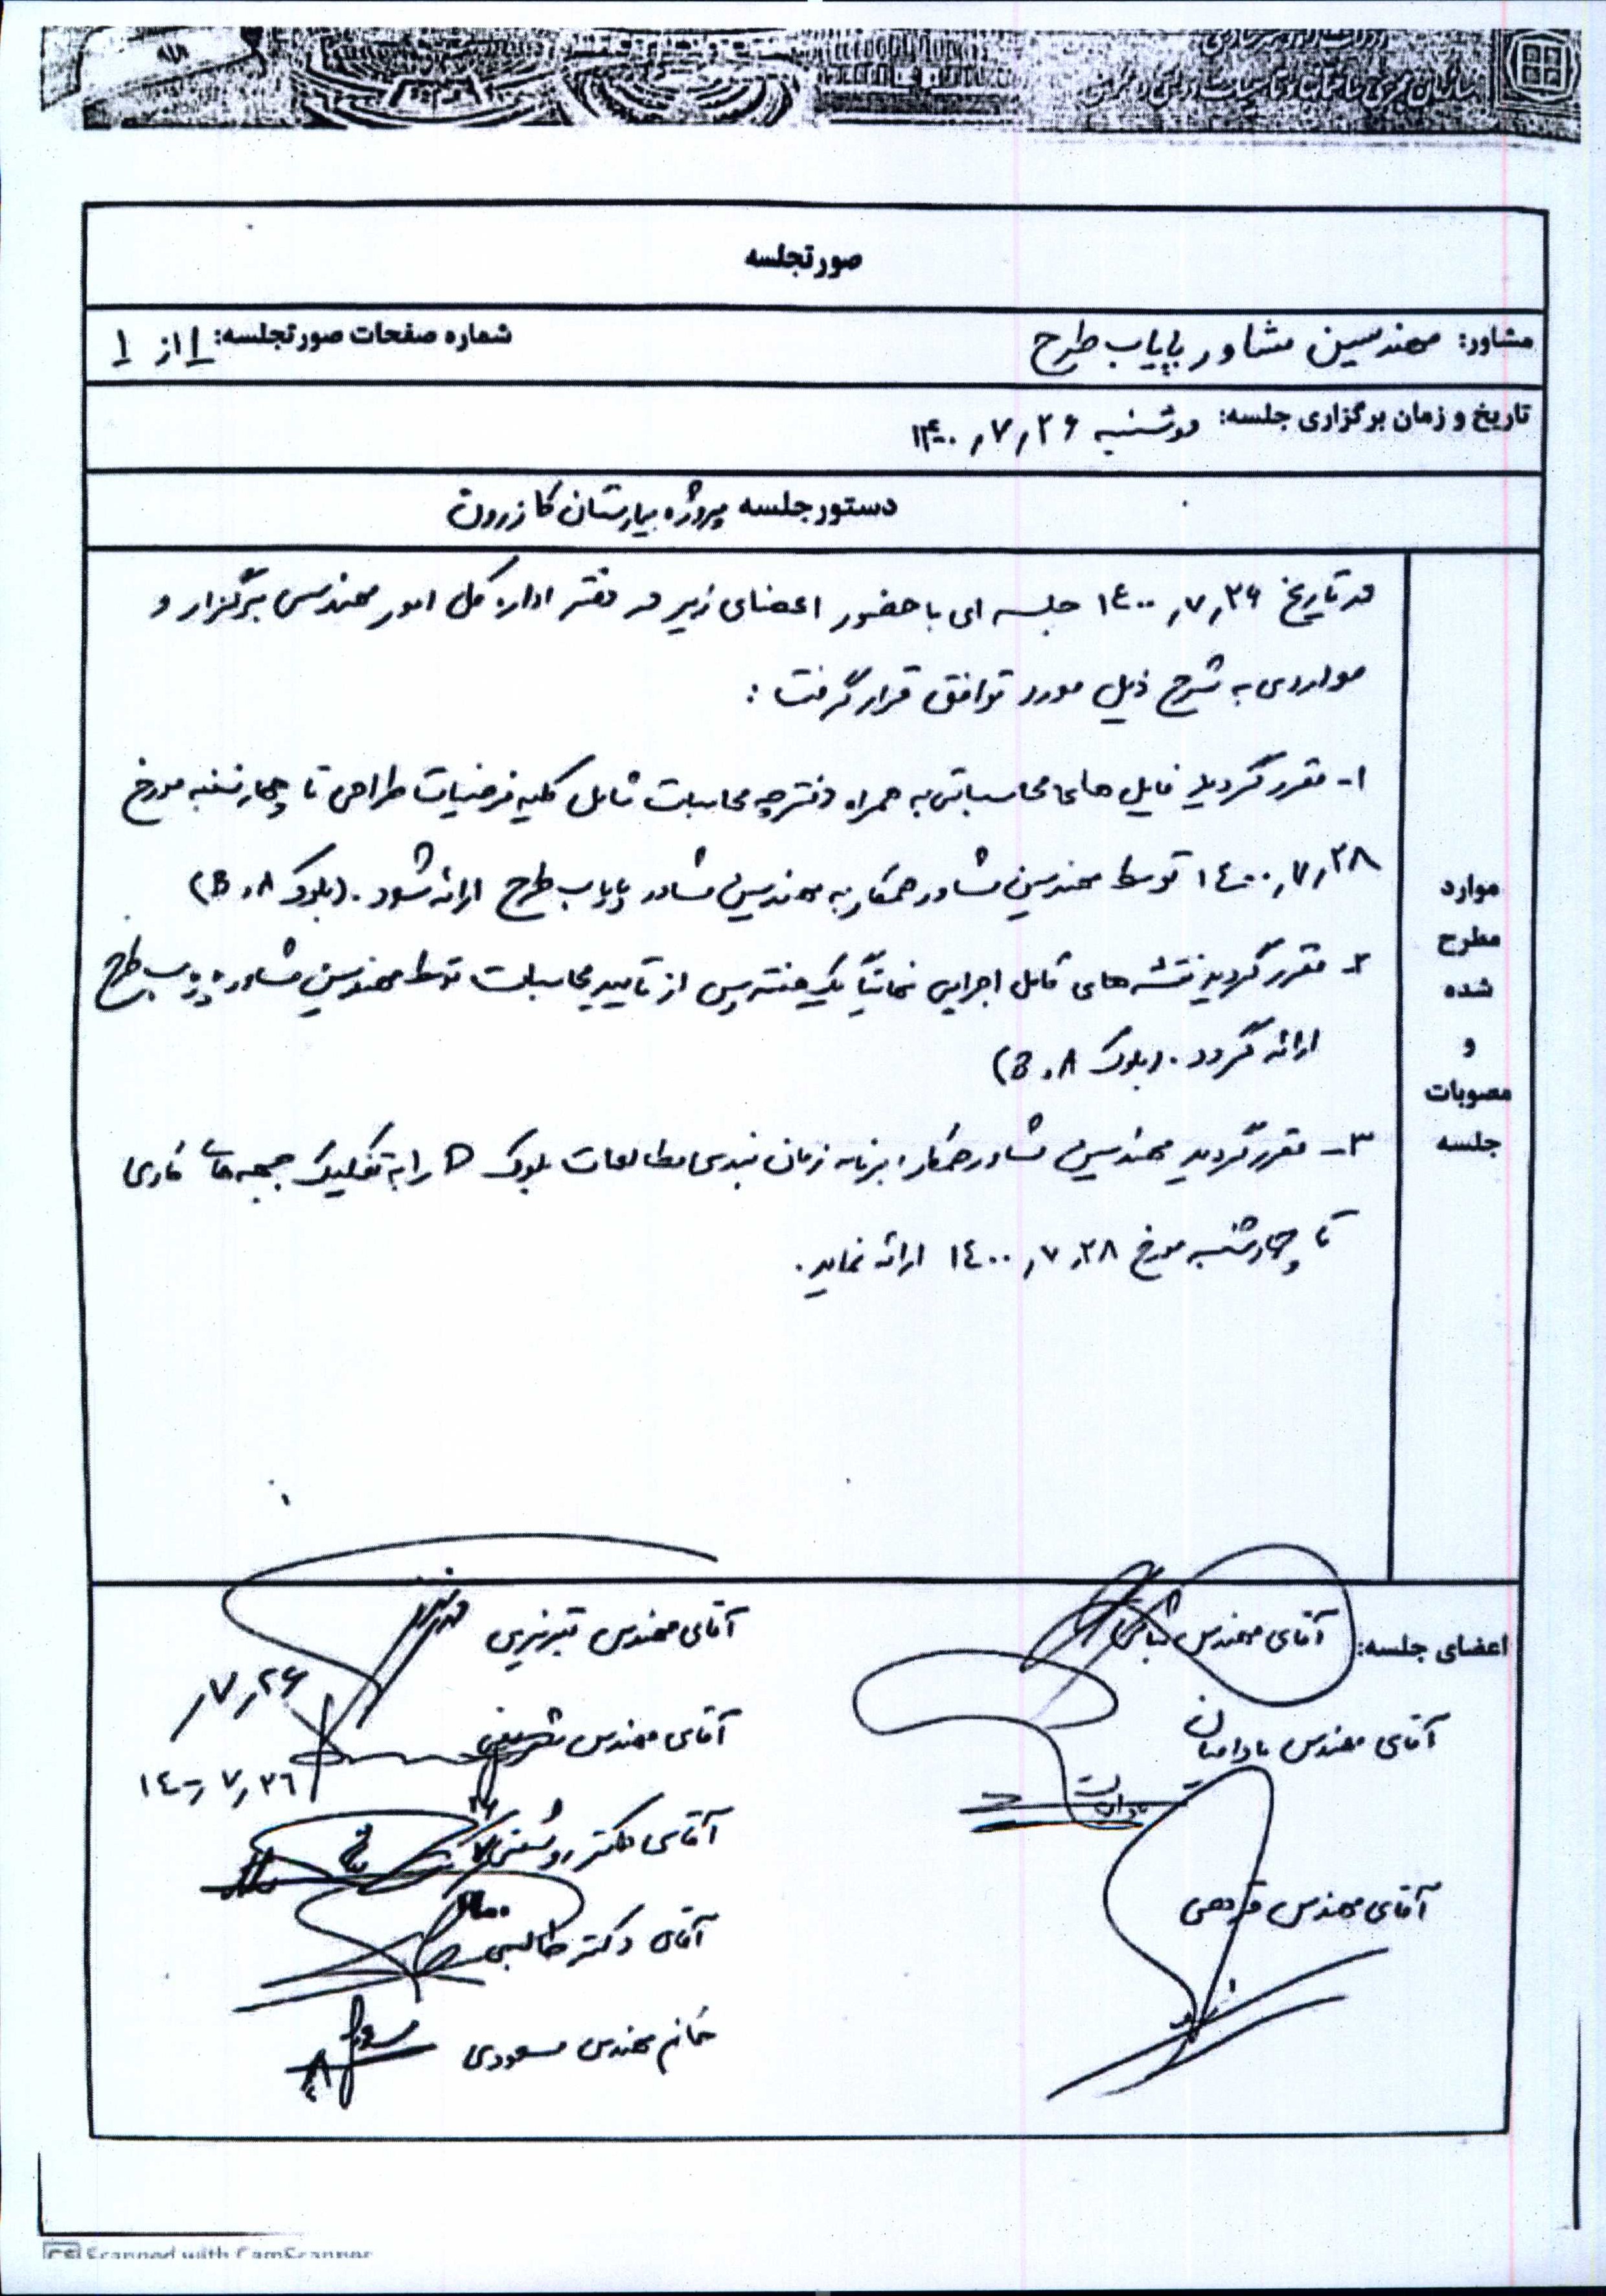 سازمان مجری ساختمانها و تاسیسات دولتی و عمومی
صورتجلسه
مشاور: مهندسین مشاور پایاب طرح
شماره صفحات صورتجلسه: ۱ از ۱
تاریخ و زمان برگزاری جلسه: دوشنبه ۱۴۰۰٫۷٫۲۶
دستور جلسه پروژه بیمارستان کازرون
موارد
مطرح
شده
و
مصوبات
جلسه
در تاریخ ۱۴۰۰٫۷٫۲۶ جلسه ای با حضور اعضای زیر در دفتر اداره کل امور مهندسی برگزار و
مواردی به شرح ذیل مورد توافق قرار گرفت :
۱- مقرر گردید فایل های محاسباتی به همراه دفترچه محاسبات شامل کلیه فرضیات طراحی تا چهارشنبه مورخ
۱۴۰۰٫۷٫۲۸ توسط مهندسین مشاور همکار به مهندسین مشاور پایاب طرح ارائه شود . (بلوک A و B)
۲- مقرر گردید نقشه های قابل اجرایی نهایتاً یک هفته پس از تایید محاسبات توسط مهندسین مشاور پایاب طرح
ارائه گردد . (بلوک A و B)
۳- مقرر گردید مهندسین مشاور همکار برنامه زمان بندی مطالعات بلوک D را به تفکیک جبهه های کاری
تا چهارشنبه مورخ ۱۴۰۰٫۷٫۲۸ ارائه نماید .
اعضای جلسه: آقای مهندس
آقای مهندس تبریزی
۷٫۲۶
آقای مهندس بادامیان
آقای مهندس شریفی
۱۴۰۰٫۷٫۲۶
آقای دکتر روشنی
آقای مهندس فرهی
آقای دکتر طالبی
خانم مهندس مسعودی
CS Scanned with CamScanner